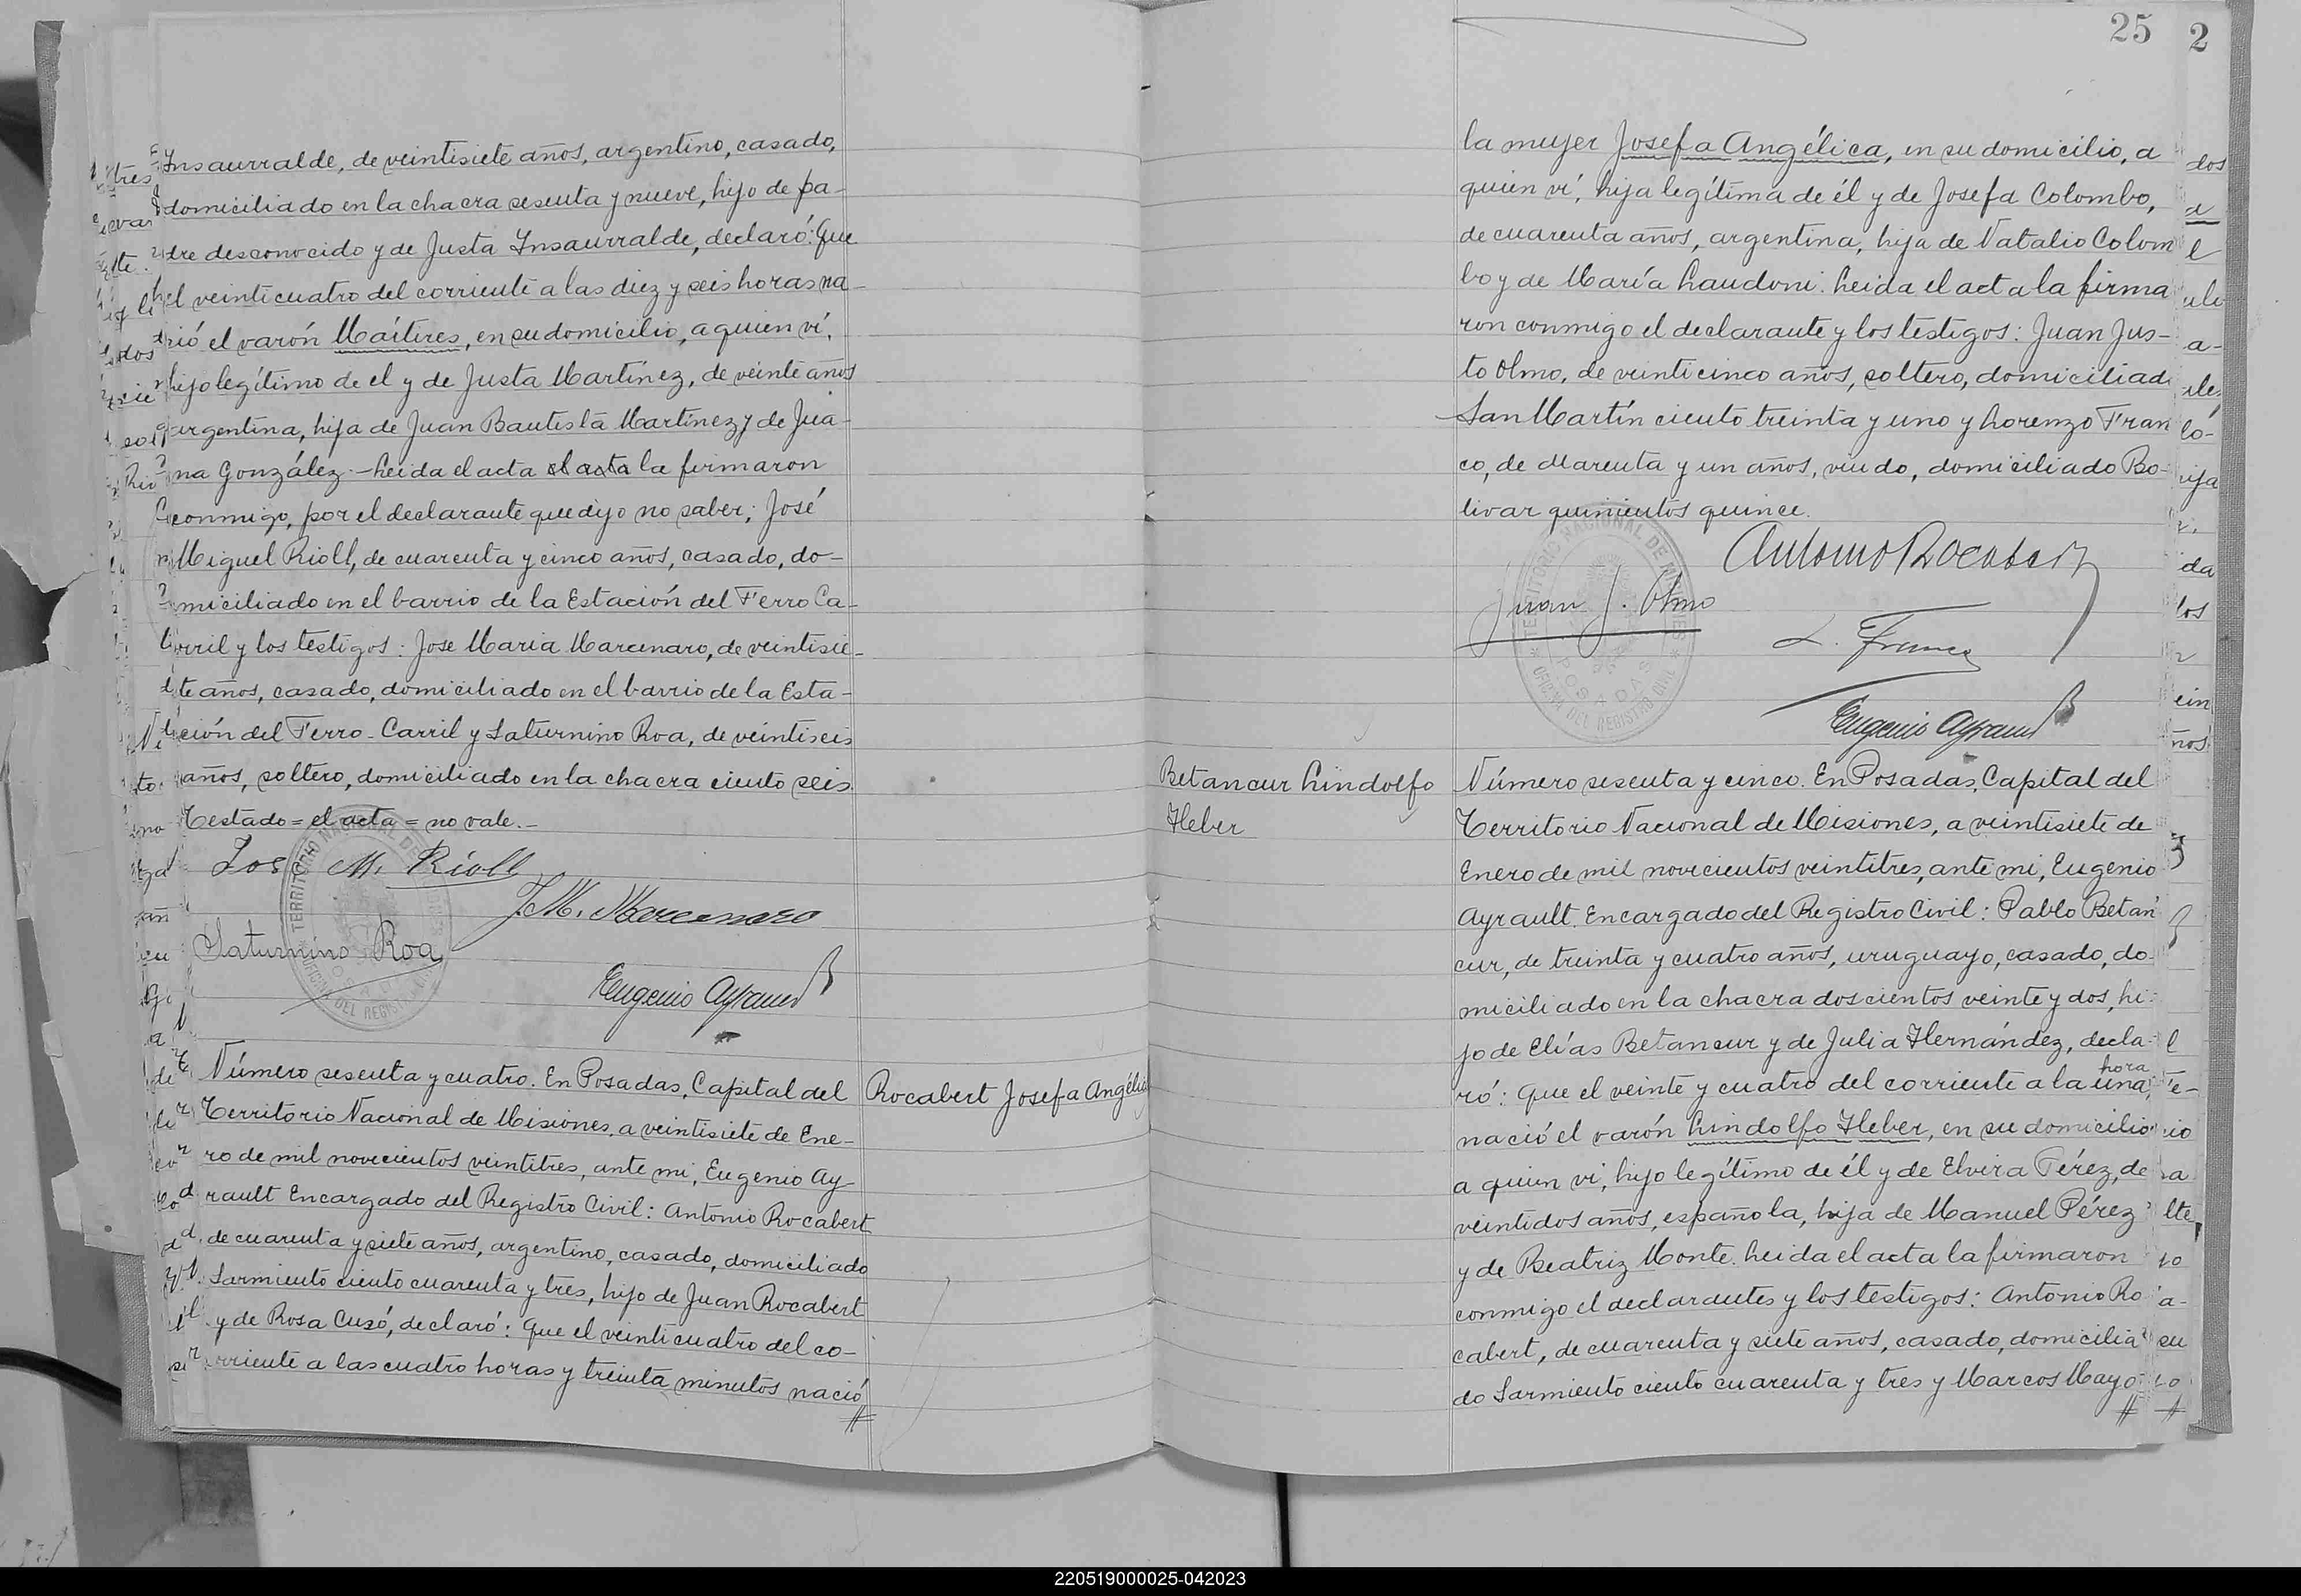 Insaurralde, de veintisiete años, argentino, casado,
domiciliado en la chacra sesenta y nueve, hijo de pa-
dre desconocido y de Justa Insaurralde, declaró: Que
el veinticuatro del corriente a las diez y seis horas na-
ció el varón Mártires, en su domicilio, a quien ví,
hijo legítimo de el y de Justa Martínez, de veinte años
argentina, hija de Juan Bautista Martínez y de Jua-
na González.- Leida el acta el acta la firmaron
conmigo, por el declarante que dijo no saber; José
Miguel Rioll, de cuarenta y cinco años, casado, do-
miciliado en el barrio de la Estación del Ferro Ca-
rril y los testigos: Jose Maria Marcenaro, de veintisie-
te años, casado, domiciliado en el barrio de la Esta-
ción del Ferro-Carril y Saturnino Roa, de veintiseis
años, soltero, domiciliado en la chacra ciento seis
Testado = el acta = no vale.-
Jose M. Rioll
J. M. Marcenaro
Saturnino Roa
Eugenio Ayrault
TERRITORIO NACIONAL DE
OFICINA DEL REGISTRO
Número sesenta y cuatro. En Posadas, Capital del
Territorio Nacional de Misiones, a veintisiete de Ene-
ro de mil novecientos veintitres, ante mi, Eugenio Ay-
rault Encargado del Registro Civil: Antonio Rocabert
de cuarenta y siete años, argentino, casado, domiciliado
Sarmiento ciento cuarenta y tres, hijo de Juan Rocabert
y de Rosa Cusó, declaró: Que el veinticuatro del co-
rriente a las cuatro horas y treinta minutos nació
#
Rocabert Josefa Angélic
25 2
la mujer Josefa Angélica, en su domicilio, a
quien ví, hija legítima de él y de Josefa Colombo,
de cuarenta años, argentina, hija de Natalio Colom
bo y de María Laudoni. Leida el acta la firma
ron conmigo el declarante y los testigos: Juan Jus-
to Olmo, de veinticinco años, soltero, domiciliad
San Martín ciento treinta y uno y Lorenzo Fran
co, de cuarenta y un años, viudo, domiciliado Bo-
livar quinientos quince.
Antonio Rocabert
Juan J. Olmo
L. Franco
Eugenio Ayrault
TERRITORIO NACIONAL DE MISIONES
POSADAS
OFICINA DEL REGISTRO CIVIL
Betancur Lindolfo
Heber
Número sesenta y cinco. En Posadas, Capital del
Territorio Nacional de Misiones, a veintisiete de
Enero de mil novecientos veintitres, ante mi, Eugenio
Ayrault Encargado del Registro Civil: Pablo Betan
cur, de treinta y cuatro años, uruguayo, casado, do-
miciliado en la chacra doscientos veinte y dos, hi-
jo de Elías Betancur y de Julia Hernández, decla-
ró: Que el veinte y cuatro del corriente a la una hora,
nació el varón Lindolfo Heber, en su domicilio
a quien vi, hijo legítimo de él y de Elvira Pérez, de
veintidos años, española, hija de Manuel Pérez
y de Beatriz Monte. Leida el acta la firmaron
conmigo el declarantes y los testigos: Antonio Ro
cabert, de cuarenta y siete años, casado, domicilia
do Sarmiento ciento cuarenta y tres y Marcos Mayo
#
220519000025-042023